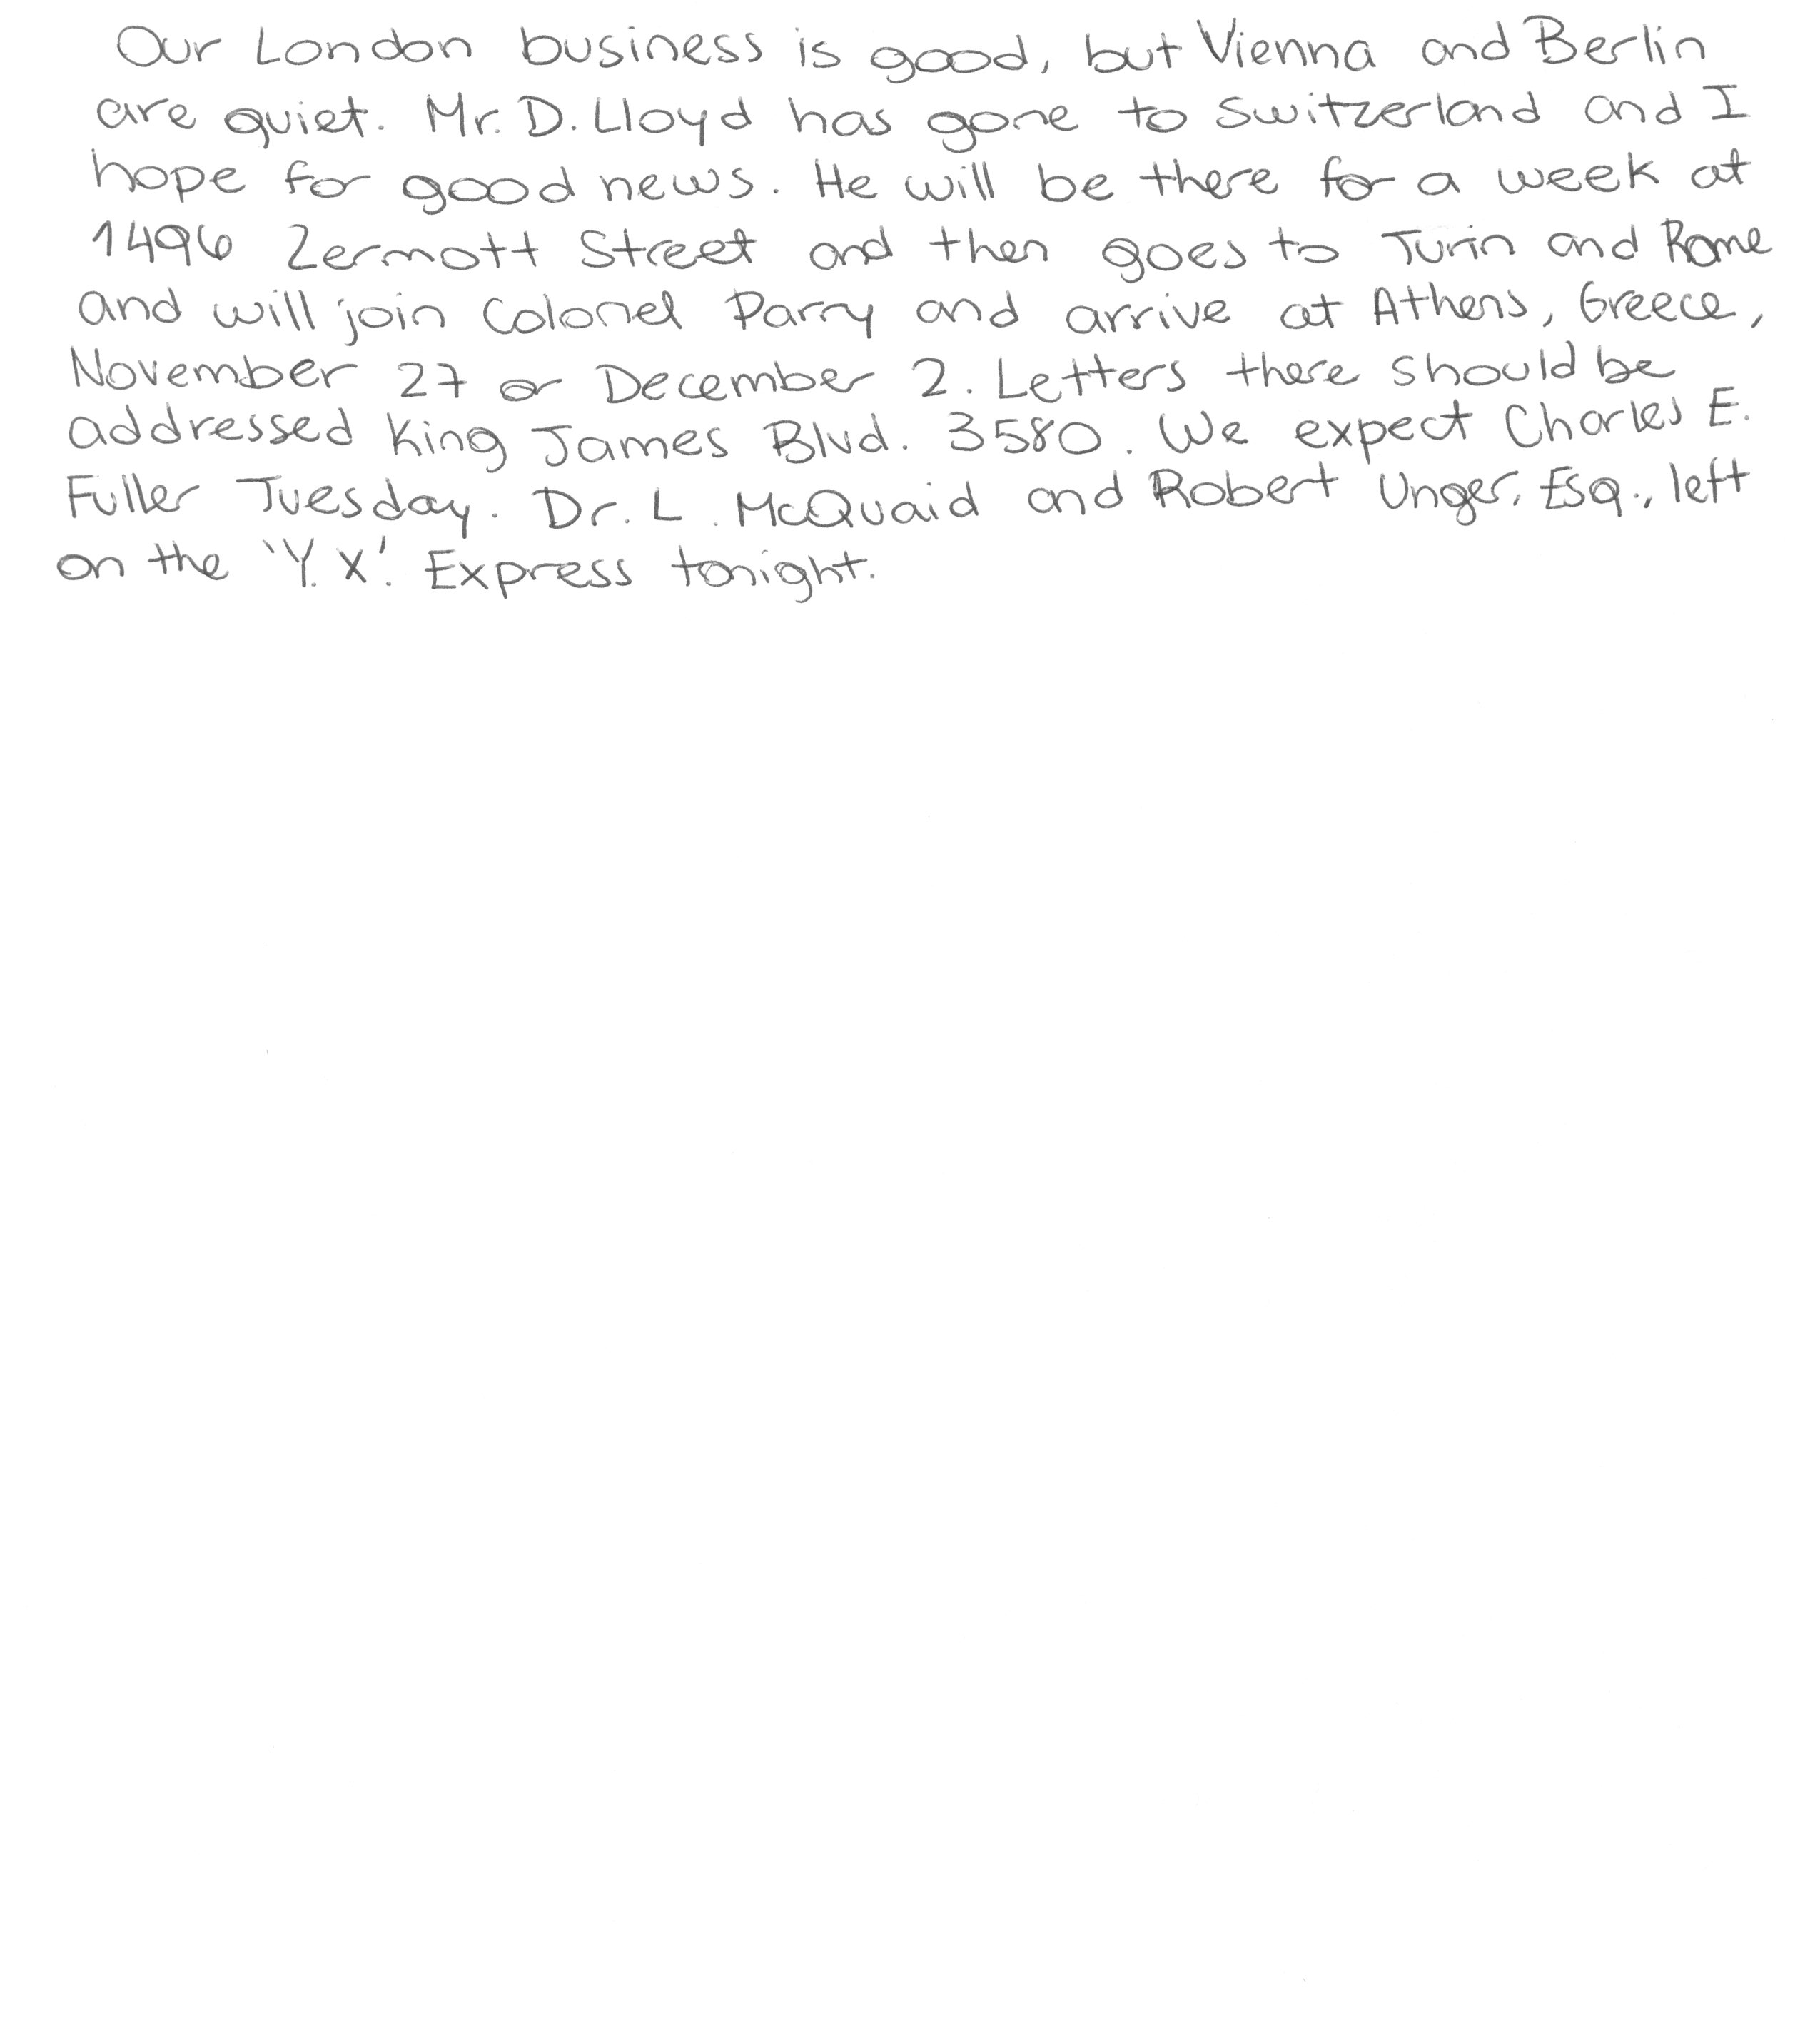 Our London business is good, but Vienna and Berlin
are quiet. Mr. D. Lloyd has gone to Switzerland and I
hope for good news. He will be there for a week at
1496 Zermott Street and then goes to Turin and Rome
and will join Colonel Parry and arrive at Athens, Greece,
November 27 or December 2. Letters there should be
addressed King James Blvd. 3580. We expect Charles E.
Fuller Tuesday. Dr. L. McQuaid and Robert Unger, Esq., left
on the 'Y.X'. Express tonight.